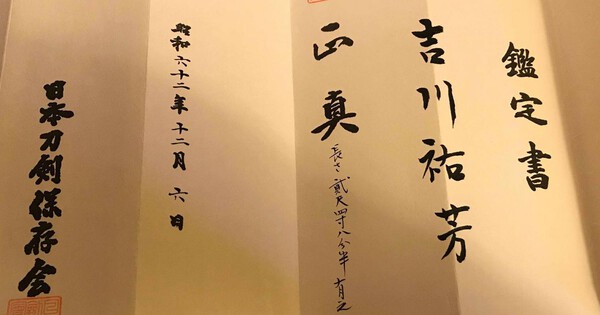 鑑定書
吉川祐芳
正真
長さ貳尺四寸八分半有之
昭和六十二年十二月六日
日本刀剣保存会